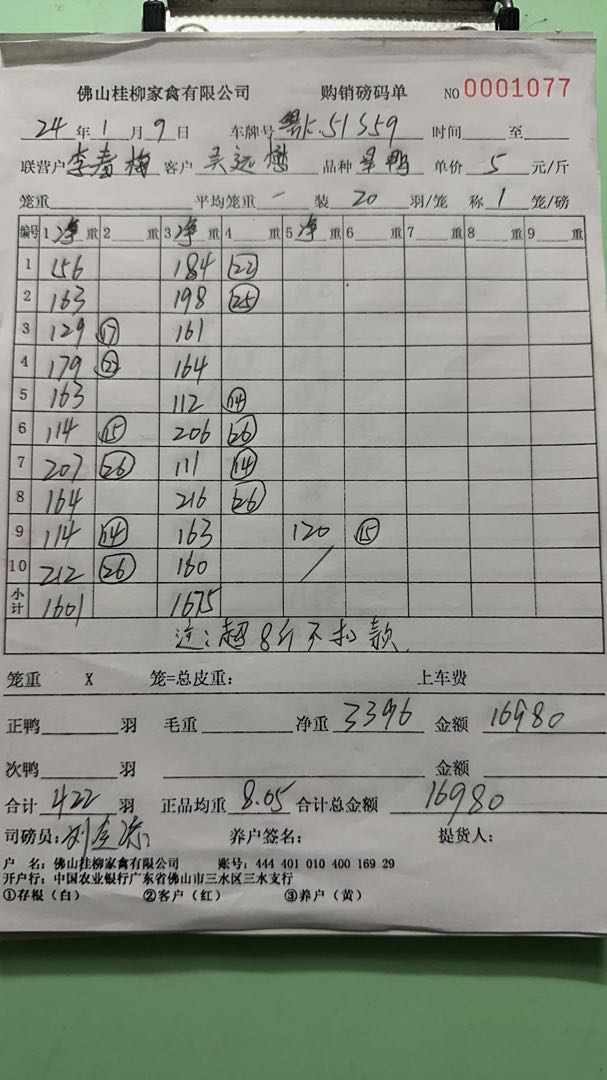 佛山桂柳家禽有限公司 购销磅码单 NO 0001077
24 年 1 月 9 日 车牌号 粤K.51S59 时间 至
联营户 李春梅 客户 吴远 品种 单价 5 元/斤
笼重 平均笼重 一 装 20 羽/笼 称 1 笼/磅
编号 1 净 重 2 重 3 净 重 4 重 5 净 重 6 重 7 重 8 重 9 重
1 156 184 22
2 163 198 25
3 129 17 161
4 179 22 164
5 163 112 14
6 114 15 206 26
7 207 26 111 14
8 164 216 26
9 114 14 163 120 15
10 212 26 160 /
小计 1601 1675
注:超8斤不扣款.
笼重 X 笼=总皮重: 上车费
正鸭 羽 毛重 净重 3396 金额 16980
次鸭 羽 金额
合计 422 羽 正品均重 8.05 合计总金额 16980
司磅员: 刘 养户签名: 提货人:
户 名: 佛山桂柳家禽有限公司 账号: 444 401 010 400 169 29
开户行: 中国农业银行广东省佛山市三水区三水支行
①存根(白) ②客户(红) ③养户(黄)